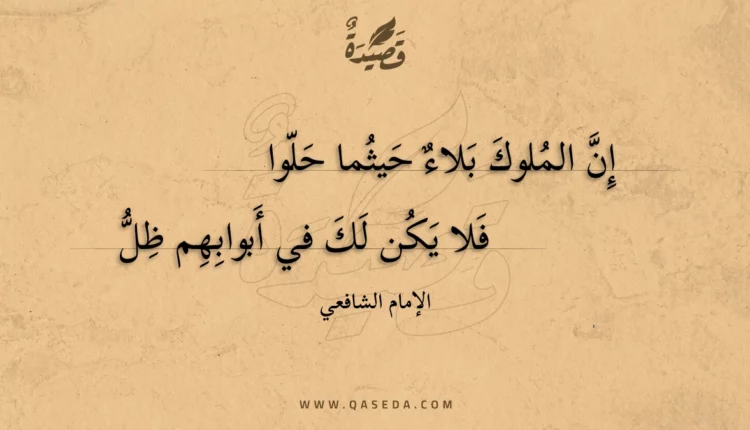 قَصِيدَةٌ
إِنَّ المُلوكَ بَلاءٌ حَيثُما حَلّوا
فَلا يَكُن لَكَ في أَبوابِهِم ظِلُّ
الإمام الشافعي
WWW.QASEDA.COM